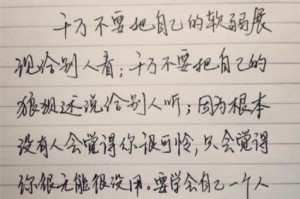 千万不要把自己的软弱展
现给别人看；千万不要把自己的
狼狈述说给别人听；因为根本
没有人会觉得你很可怜，只会觉得
你很无能很没用。要学会自己一个人